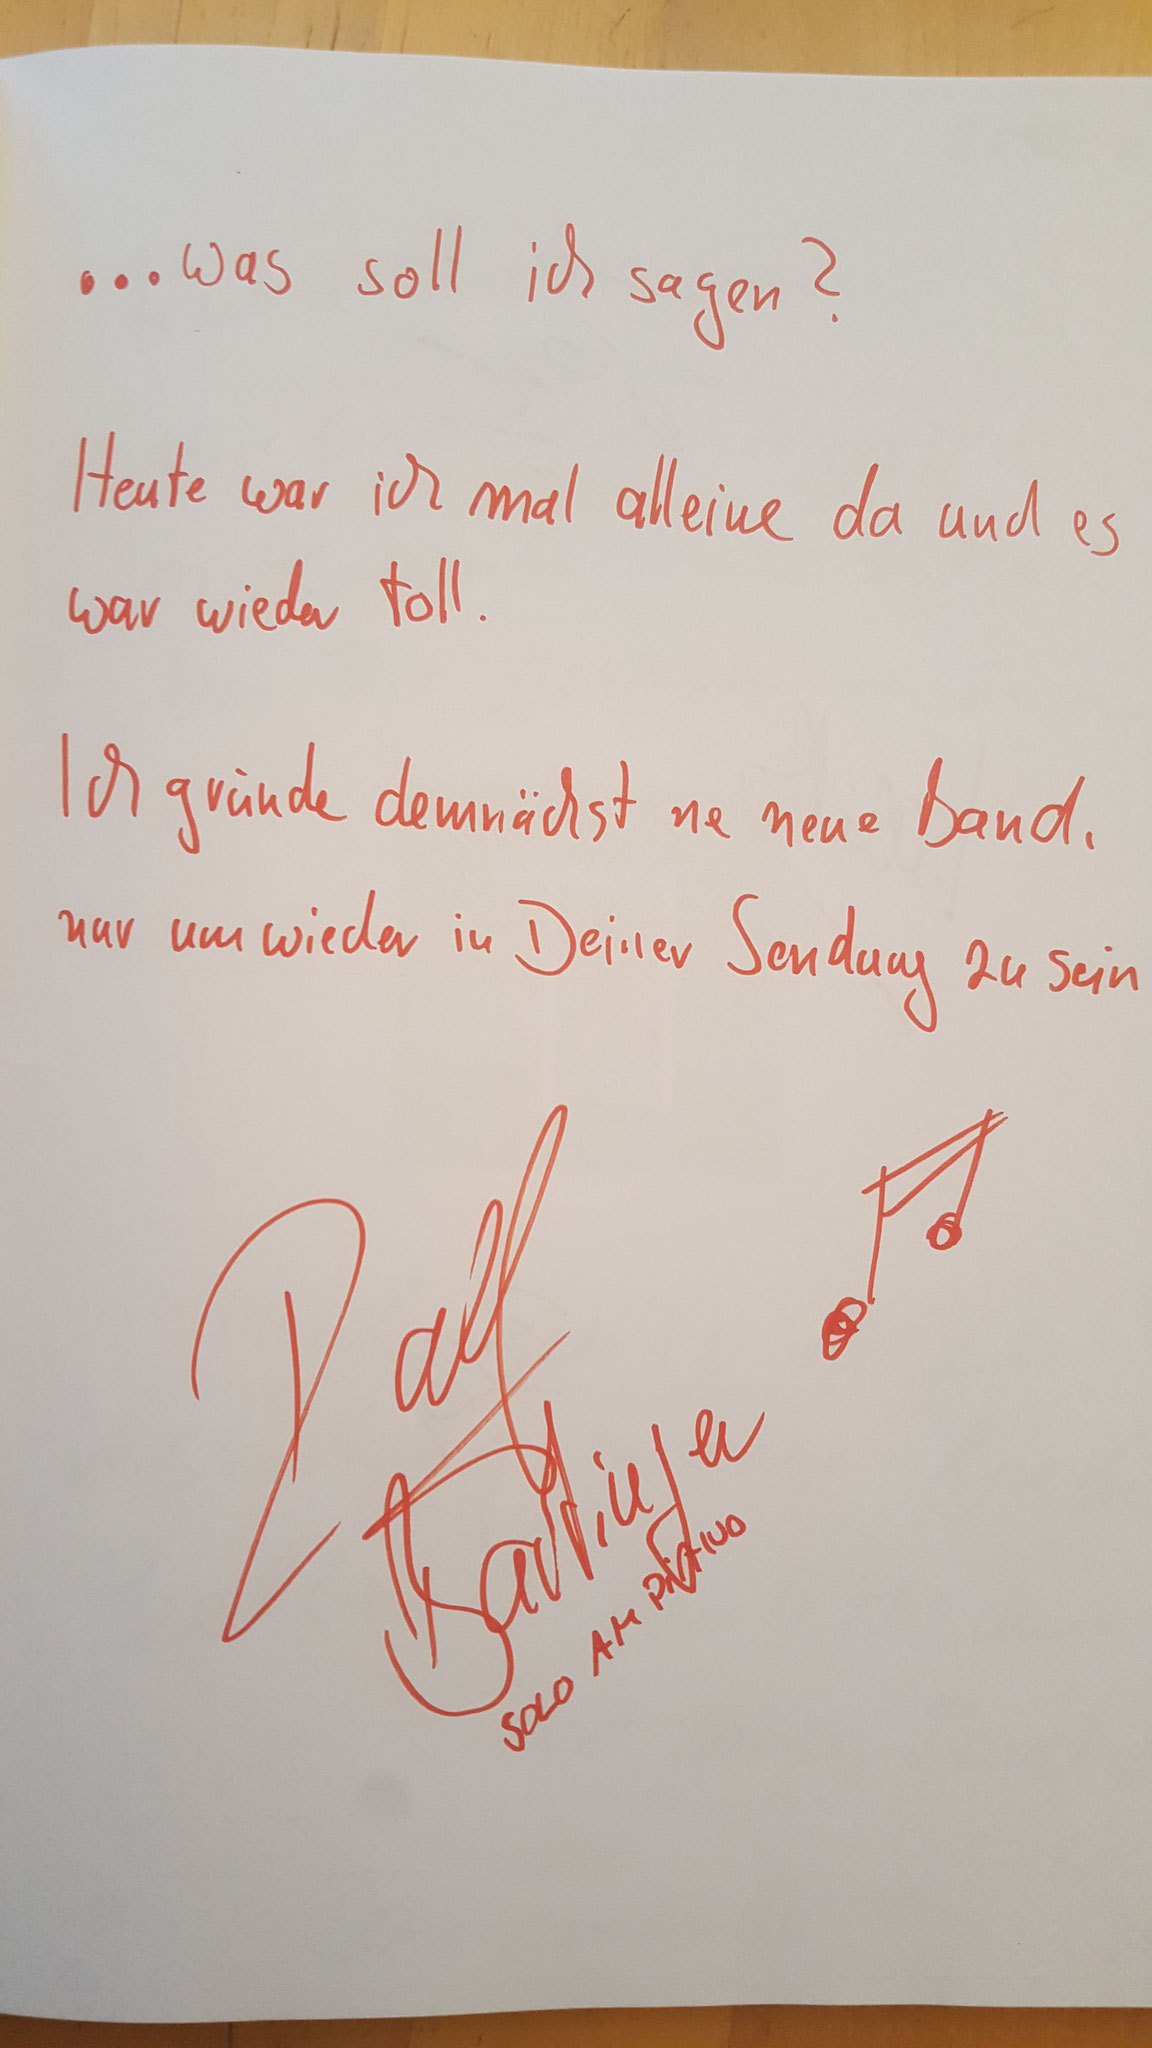 ...was soll ich sagen?
Heute war ich mal alleine da und es
war wieder toll.
Ich gründe demnächst ne neue Band.
nur um wieder in Deiner Sendung zu sein
Ralf
SOLO AM PIANO